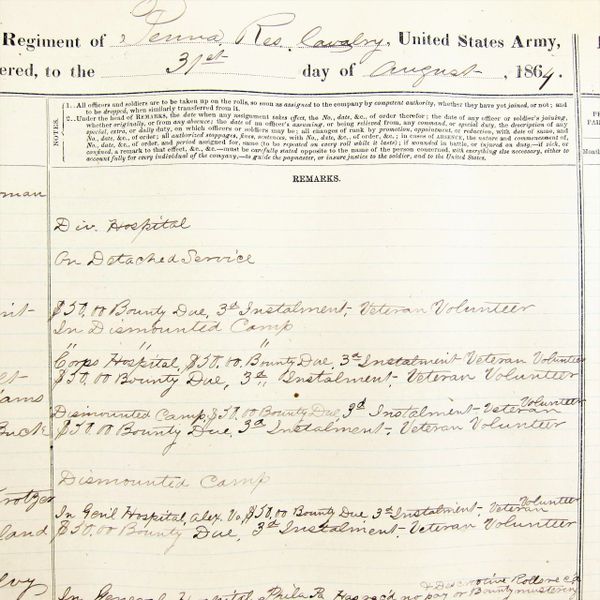 Regiment of Penna. Res. Cavalry, United States Army,
ered, to the 31st day of August, 1864.
NOTES.
1. All officers and soldiers are to be taken up on the rolls, so soon as assigned to the company by competent authority, whether they have yet joined, or not; and
to be dropped, when similarly transferred from it.
2. Under the head of REMARKS, the date when any assignment takes effect, the No., date, &c., of order therefor; the date of any officer or soldier's joining,
whether originally, or from any absence; the date of an officer's assuming, or being relieved from, any command, or special duty, the description of any
special, extra, or daily duty, on which officers or soldiers may be; all changes of rank by promotion, appointment, or reduction, with date of same, and
No., date, &c., of order; all authorized stoppages, fines, sentences, with No., date, &c., of order, &c.; in cases of ABSENCE, the nature and commencement of,
No., date, &c., of order, and period assigned for, same (to be repeated on every roll while it lasts); if wounded in battle, or injured on duty,—if sick, or
confined, a remark to that effect, &c., &c.—must be carefully stated opposite to the name of the person concerned, with everything else necessary, either to
account fully for every individual of the company,—to guide the paymaster, or insure justice to the soldier, and to the United States.
REMARKS.
Month
man
Div. Hospital
On Detached Service
$50.00 Bounty Due, 3d Instalment, Veteran Volunteer
In Dismounted Camp
" " "
Corps Hospital, $50.00, Bounty Due, 3d Instalment Veteran Volunteer
$50.00 Bounty Due, 3d Instalment, Veteran Volunteer
ams
Dismounted Camp, $50.00 Bounty Due, 3d Instalment, Veteran Volunteer
Buck $50.00 Bounty Due, 3d Instalment, Veteran Volunteer
Dismounted Camp
rotzer
In Genl Hospital, Alex. Va, $50.00 Bounty Due 3d Instalment, Veteran Volunteer
land $50.00 Bounty Due, 3d Instalment, Veteran Volunteer
& Descriptive Roll
In General Hospital Phila Pa Has rec'd no pay or Bounty